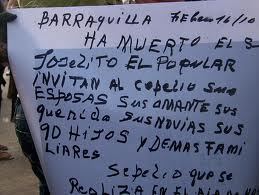 BARRAQUILLA FEBERO 16/10
HA MUERTO EL S
JOSELITO EL POPULAR
INVITAN AL COPELIO SUS
ESPOSAS SUS AMANTE SUS
QUERIDA SUS NOVIAS SUS
90 HIJOS Y DEMAS FAMI
LIARES
SEPELIO QUE SE
REALIZA EN EL